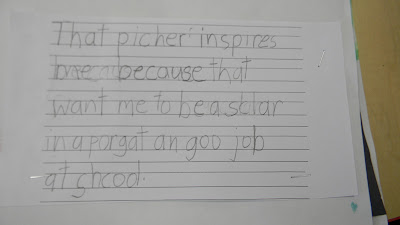 That picher inspires
me because that
want me to be a sclar
in a porgat an goo job
at shcool.